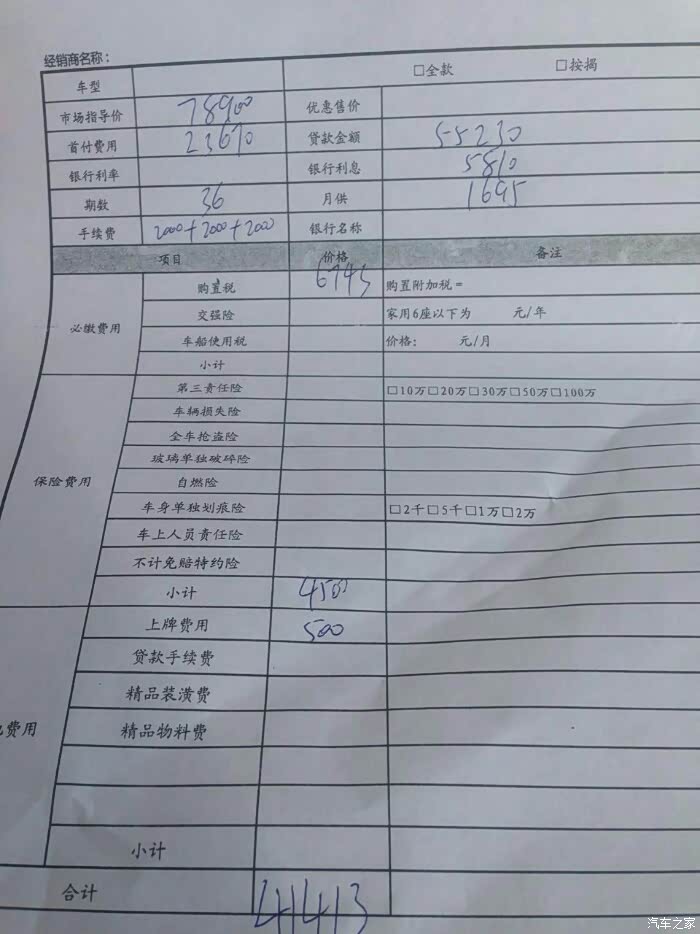 经销商名称：
车型 □全款 □按揭
市场指导价 78900 优惠售价
首付费用 23670 贷款金额 55230
银行利率 银行利息 5810
期数 36 月供 1695
手续费 2000+2000+2000 银行名称
项目 价格 备注
必缴费用
购置税 6743 购置附加税=
交强险 家用6座以下为 元/年
车船使用税 价格： 元/月
小计
保险费用
第三责任险 □10万□20万□30万□50万□100万
车辆损失险
全车抢盗险
玻璃单独破碎险
自燃险
车身单独划痕险 □2千□5千□1万□2万
车上人员责任险
不计免赔特约险
小计 4500
费用
上牌费用 500
贷款手续费
精品装潢费
精品物料费
小计
合计 41413
汽车之家